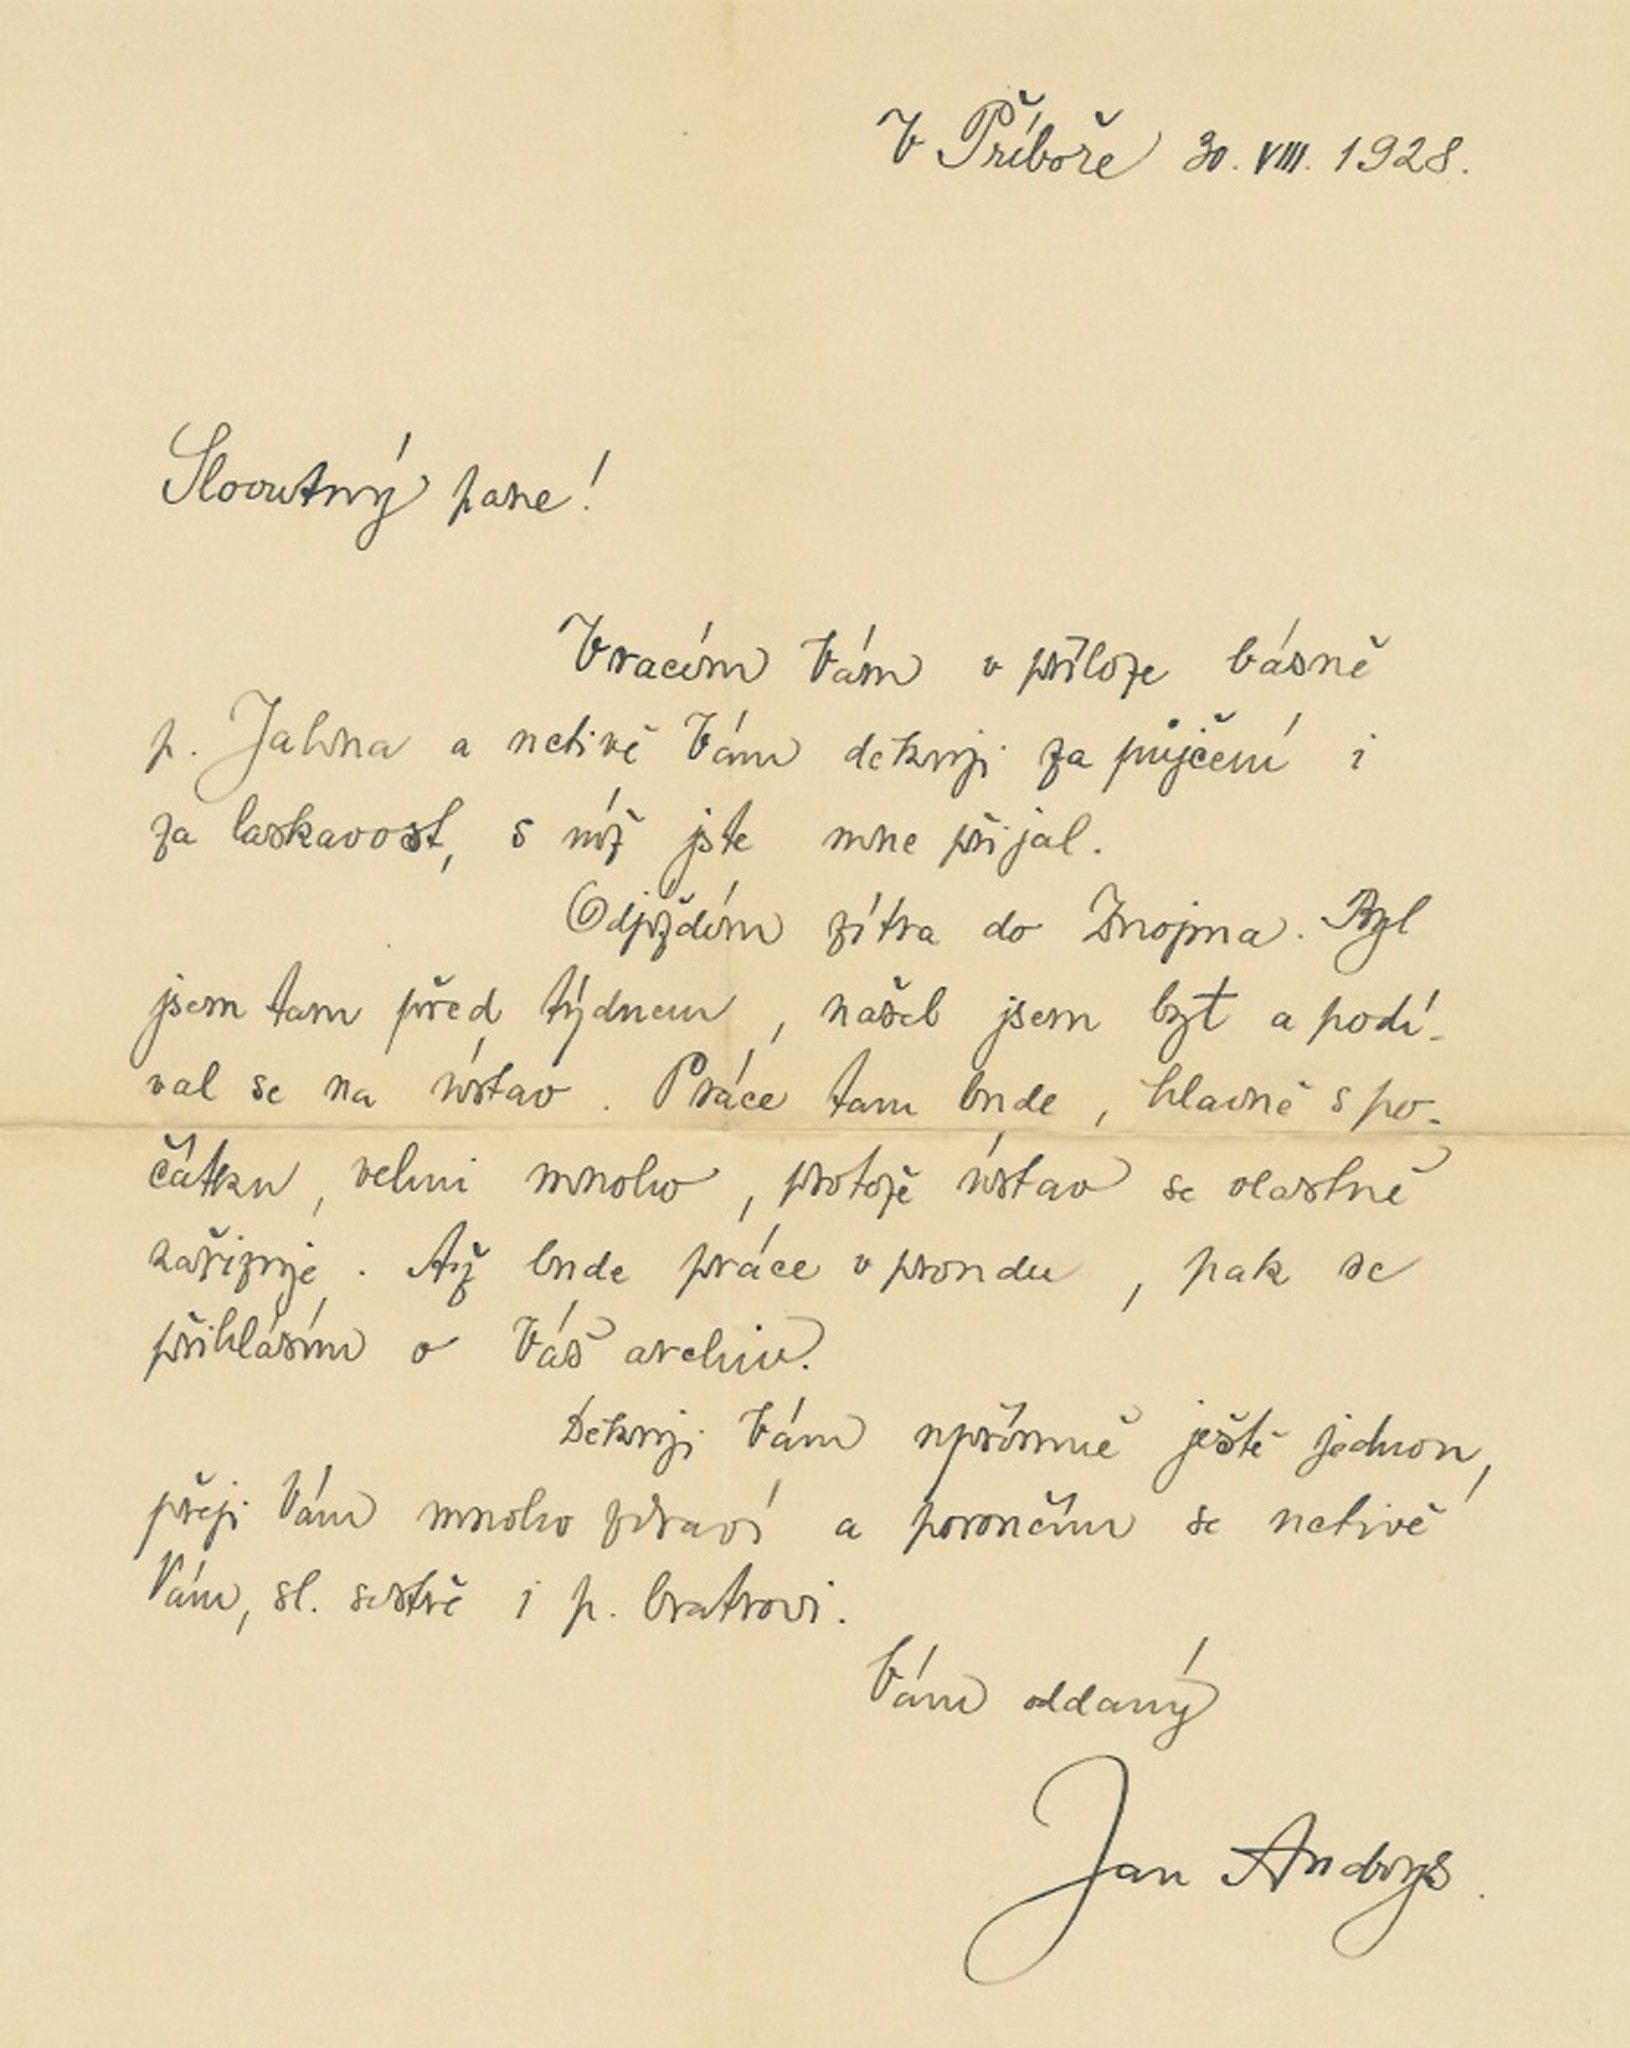 V Příboře 30. VIII. 1928.
Slovutný pane!
Vracím Vám v příloze básně
p. Jahna a uctivě Vám děkuji za půjčení i
za laskavost, s níž jste mne přijal.
Odjíždím zítra do Znojma. Byl
jsem tam před týdnem, našel jsem byt a podí-
val se na ústav. Práce tam bude, hlavně s po-
čátku, velmi mnoho, protože ústav se vlastně
zařizuje. Až bude práce v proudu, pak se
přihlásím o Váš archiv.
Děkuji Vám upřímně ještě jednou,
přeji Vám mnoho zdraví a poroučím se uctivě
Vám, sl. sestře i p. bratrovi.
Vám oddaný
Jan Andrys.